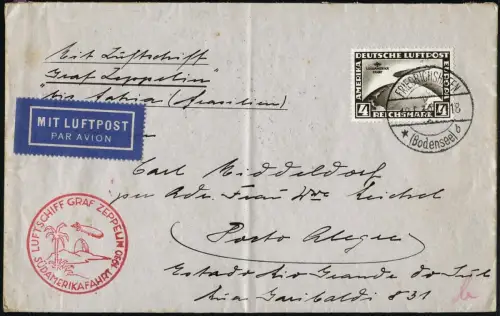 Mit Luftschiff
"Graf Zeppelin"
"via Bahia (Brasilien)
MIT LUFTPOST
PAR AVION
DEUTSCHE LUFTPOST
AMERIKA
EUROPA
SÜDAMERIKA
FAHRT
4 REICHSMARK 4
FRIEDRICHSHAFEN
18
★ (Bodensee) b
Carl Middeldorf
per Adr. Frau Wwe Reichel
Porto Alegre
Estado Rio Grande do Sul
Rua Garibaldi 831
LUFTSCHIFF GRAF ZEPPELIN
SÜDAMERIKAFAHRT 1930